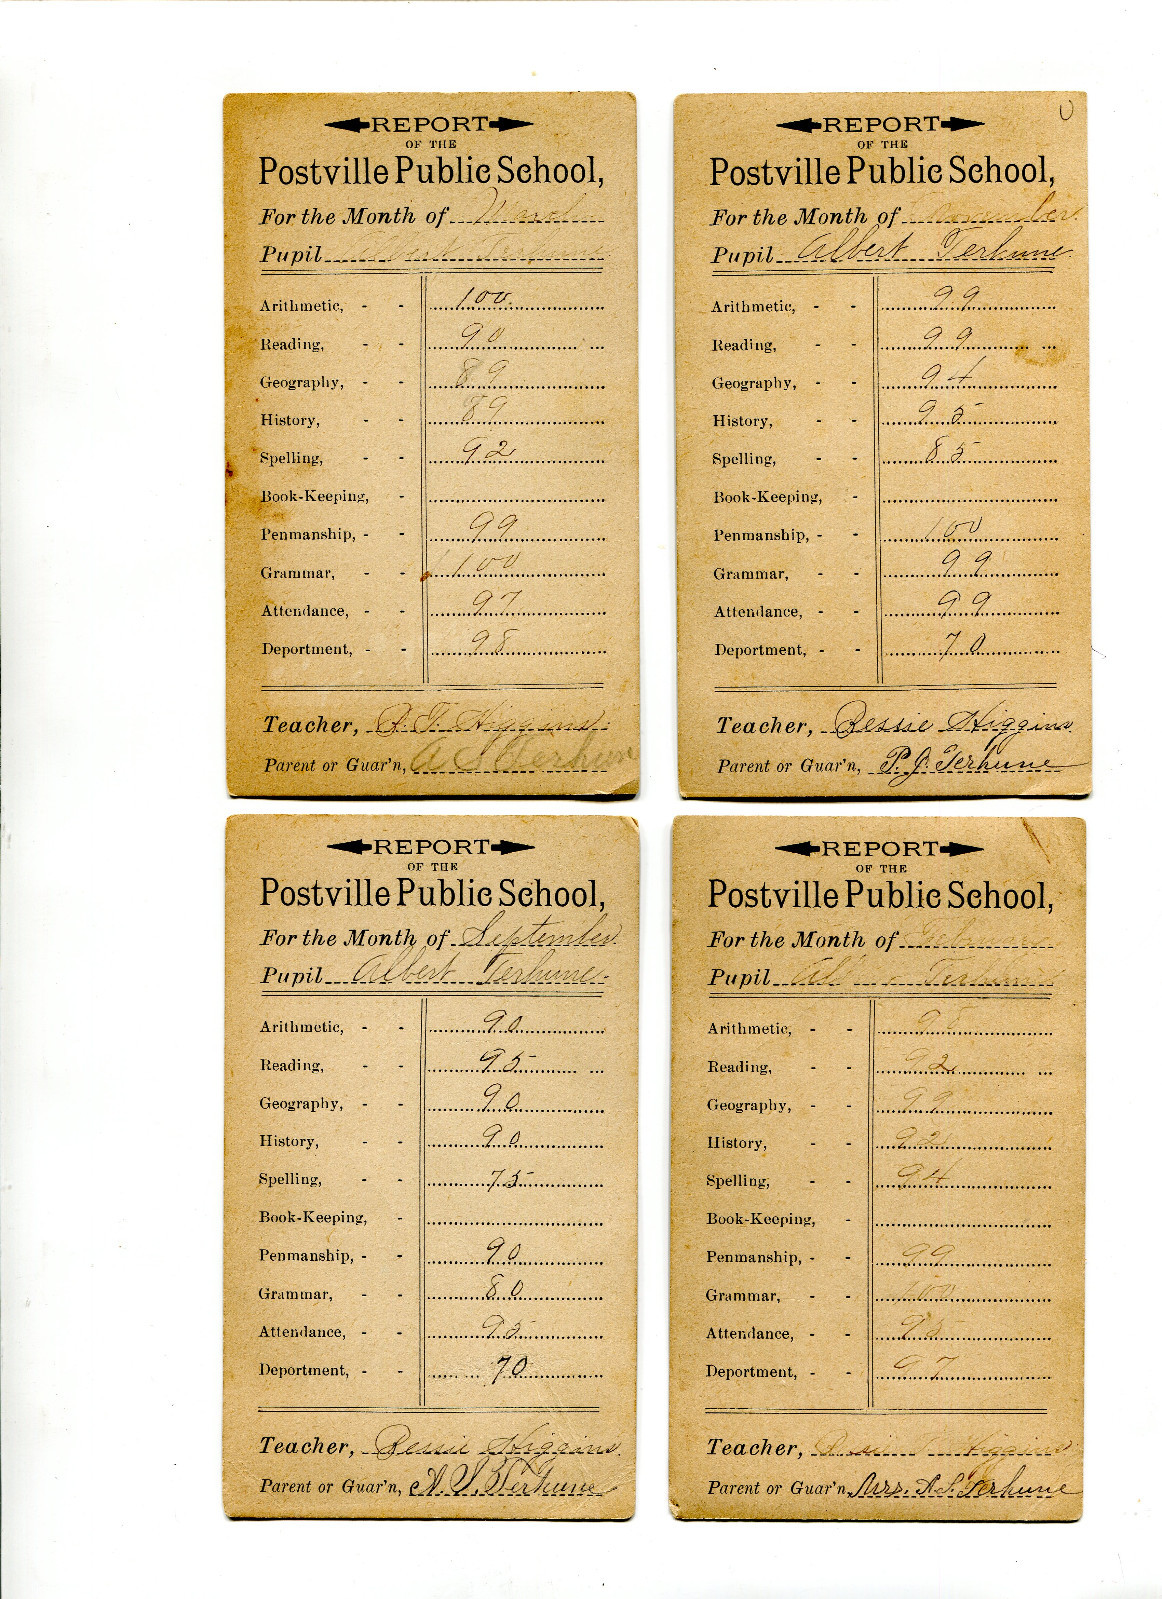 REPORT
OF THE
Postville Public School,
For the Month of March
Pupil Albert Terhune
Arithmetic, - - 100
Reading, - - 90
Geography, - - 89
History, - - 89
Spelling, - - 92
Book-Keeping, -
Penmanship, - - 99
Grammar, - - 100
Attendance, - - 97
Deportment, - - 98
Teacher, B. T. Higgins
Parent or Guar'n, A S Terhune
U
REPORT
OF THE
Postville Public School,
For the Month of November
Pupil Albert Terhune
Arithmetic, - - 99
Reading, - - 99
Geography, - - 94
History, - - 95
Spelling, - - 85
Book-Keeping, -
Penmanship, - - 100
Grammar, - - 99
Attendance, - - 99
Deportment, - - 70
Teacher, Bessie Higgins
Parent or Guar'n, P. J. Terhune
REPORT
OF THE
Postville Public School,
For the Month of September
Pupil Albert Terhune
Arithmetic, - - 90
Reading, - - 95
Geography, - - 90
History, - - 90
Spelling, - - 75
Book-Keeping, -
Penmanship, - - 90
Grammar, - - 80
Attendance, - - 95
Deportment, - - 70
Teacher, Bessie Higgins
Parent or Guar'n, A. S. Terhune
REPORT
OF THE
Postville Public School,
For the Month of February
Pupil Terhune
Arithmetic, - - 98
Reading, - - 92
Geography, - - 99
History, - - 92
Spelling, - - 94
Book-Keeping, -
Penmanship, - - 99
Grammar, - - 100
Attendance, - - 95
Deportment, - - 97
Teacher, Higgins
Parent or Guar'n, Mrs. A. S. Terhune